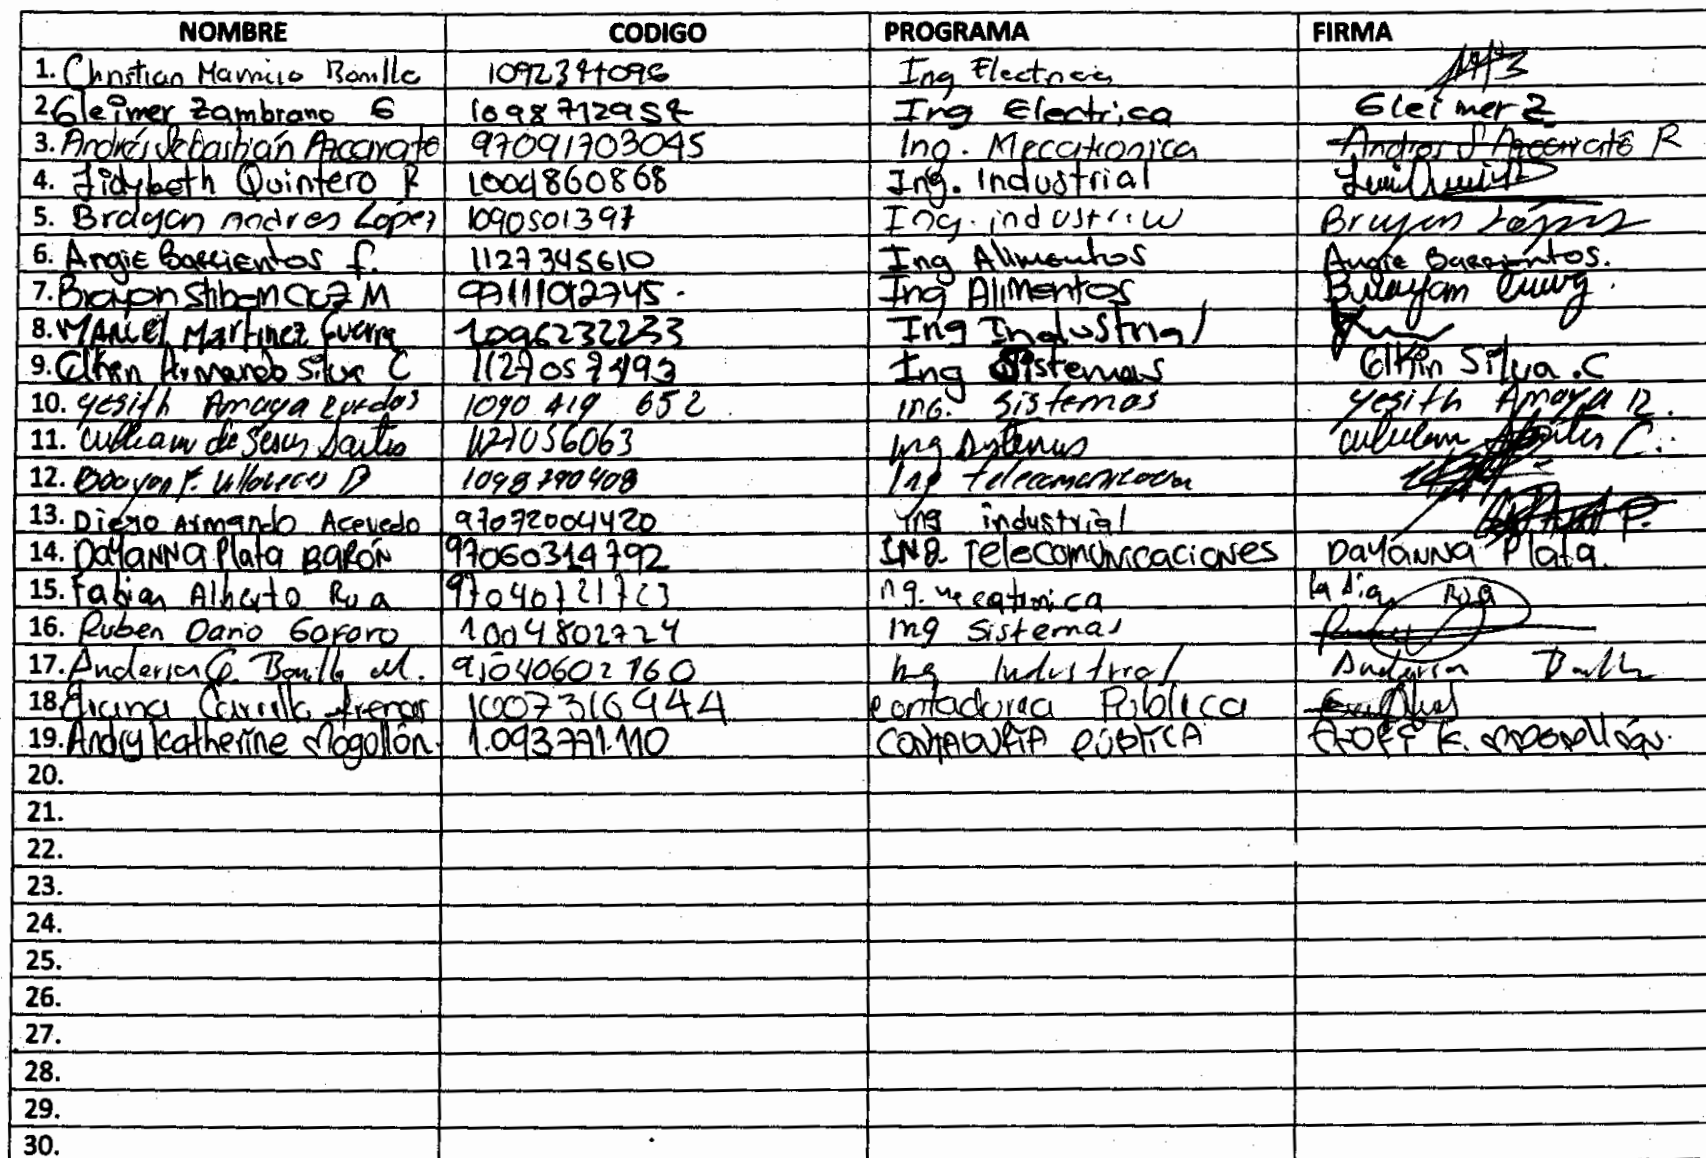 NOMBRE CODIGO PROGRAMA FIRMA
1. Christian Mauricio Bonilla 1092344096 Ing Electrica
2. Gleimer Zambrano G 1098712954 Ing Electrica Gleimer Z
3. Andrés Sebastián Ascarate 97091703045 Ing. Mecatronica Andres S Ascarate R
4. Lidybeth Quintero R 1004860868 Ing. Industrial
5. Brayan Andres López 1090501397 Ing. industrial Brayan López
6. Angie Barrientos f. 1127345610 Ing Alimentos Angie Barrientos.
7. Brayan Stiben Cruz M 97111012745. Ing Alimentos Brayam
8. Manuel Martinez Guerra 1096232233 Ing Industrial
9. Elkin Armando Silva C 1127057493 Ing Sistemas Elkin Silva .C
10. yesith Amaya Rueda 1090 419 652 ing. Sistemas yesith Amaya R.
11. William de Jesus 1127056063 ing Sistemas C.
12. 1098790408 Ing telecomunicacion
13. Diego Armando Acevedo 97072004420 ing industrial P.
14. DaYANNa Plata BARÓN 97060314792 ING. Telecomunicaciones DaYANNa Plata.
15. Fabian Alberto Rua 97040721723 ng. mecatronica Fabian Rua
16. Ruben Dario Goforo 1004802724 ing Sistemas
17. Anderson G. Bonilla M. 97040602160 Ing Industrial Anderson Bonilla
18. Carrillo 1007316944 contaduria Pública
19. Andry Katherine Mogollón. 1.093771.110 CONTADURÍA PÚBLICA Andry K. Mogollón.
20.
21.
22.
23.
24.
25.
26.
27.
28.
29.
30.